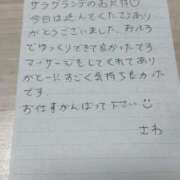 サラグランデのお兄様☺
今日は遊んでくださりあり
がとうございました。おふろ
でゆっくりできて良かったです。
マッサージもしてくれてあり
がとー!!すごく気持ち良かった
です。
お仕事がんばって下さい☺
さわ